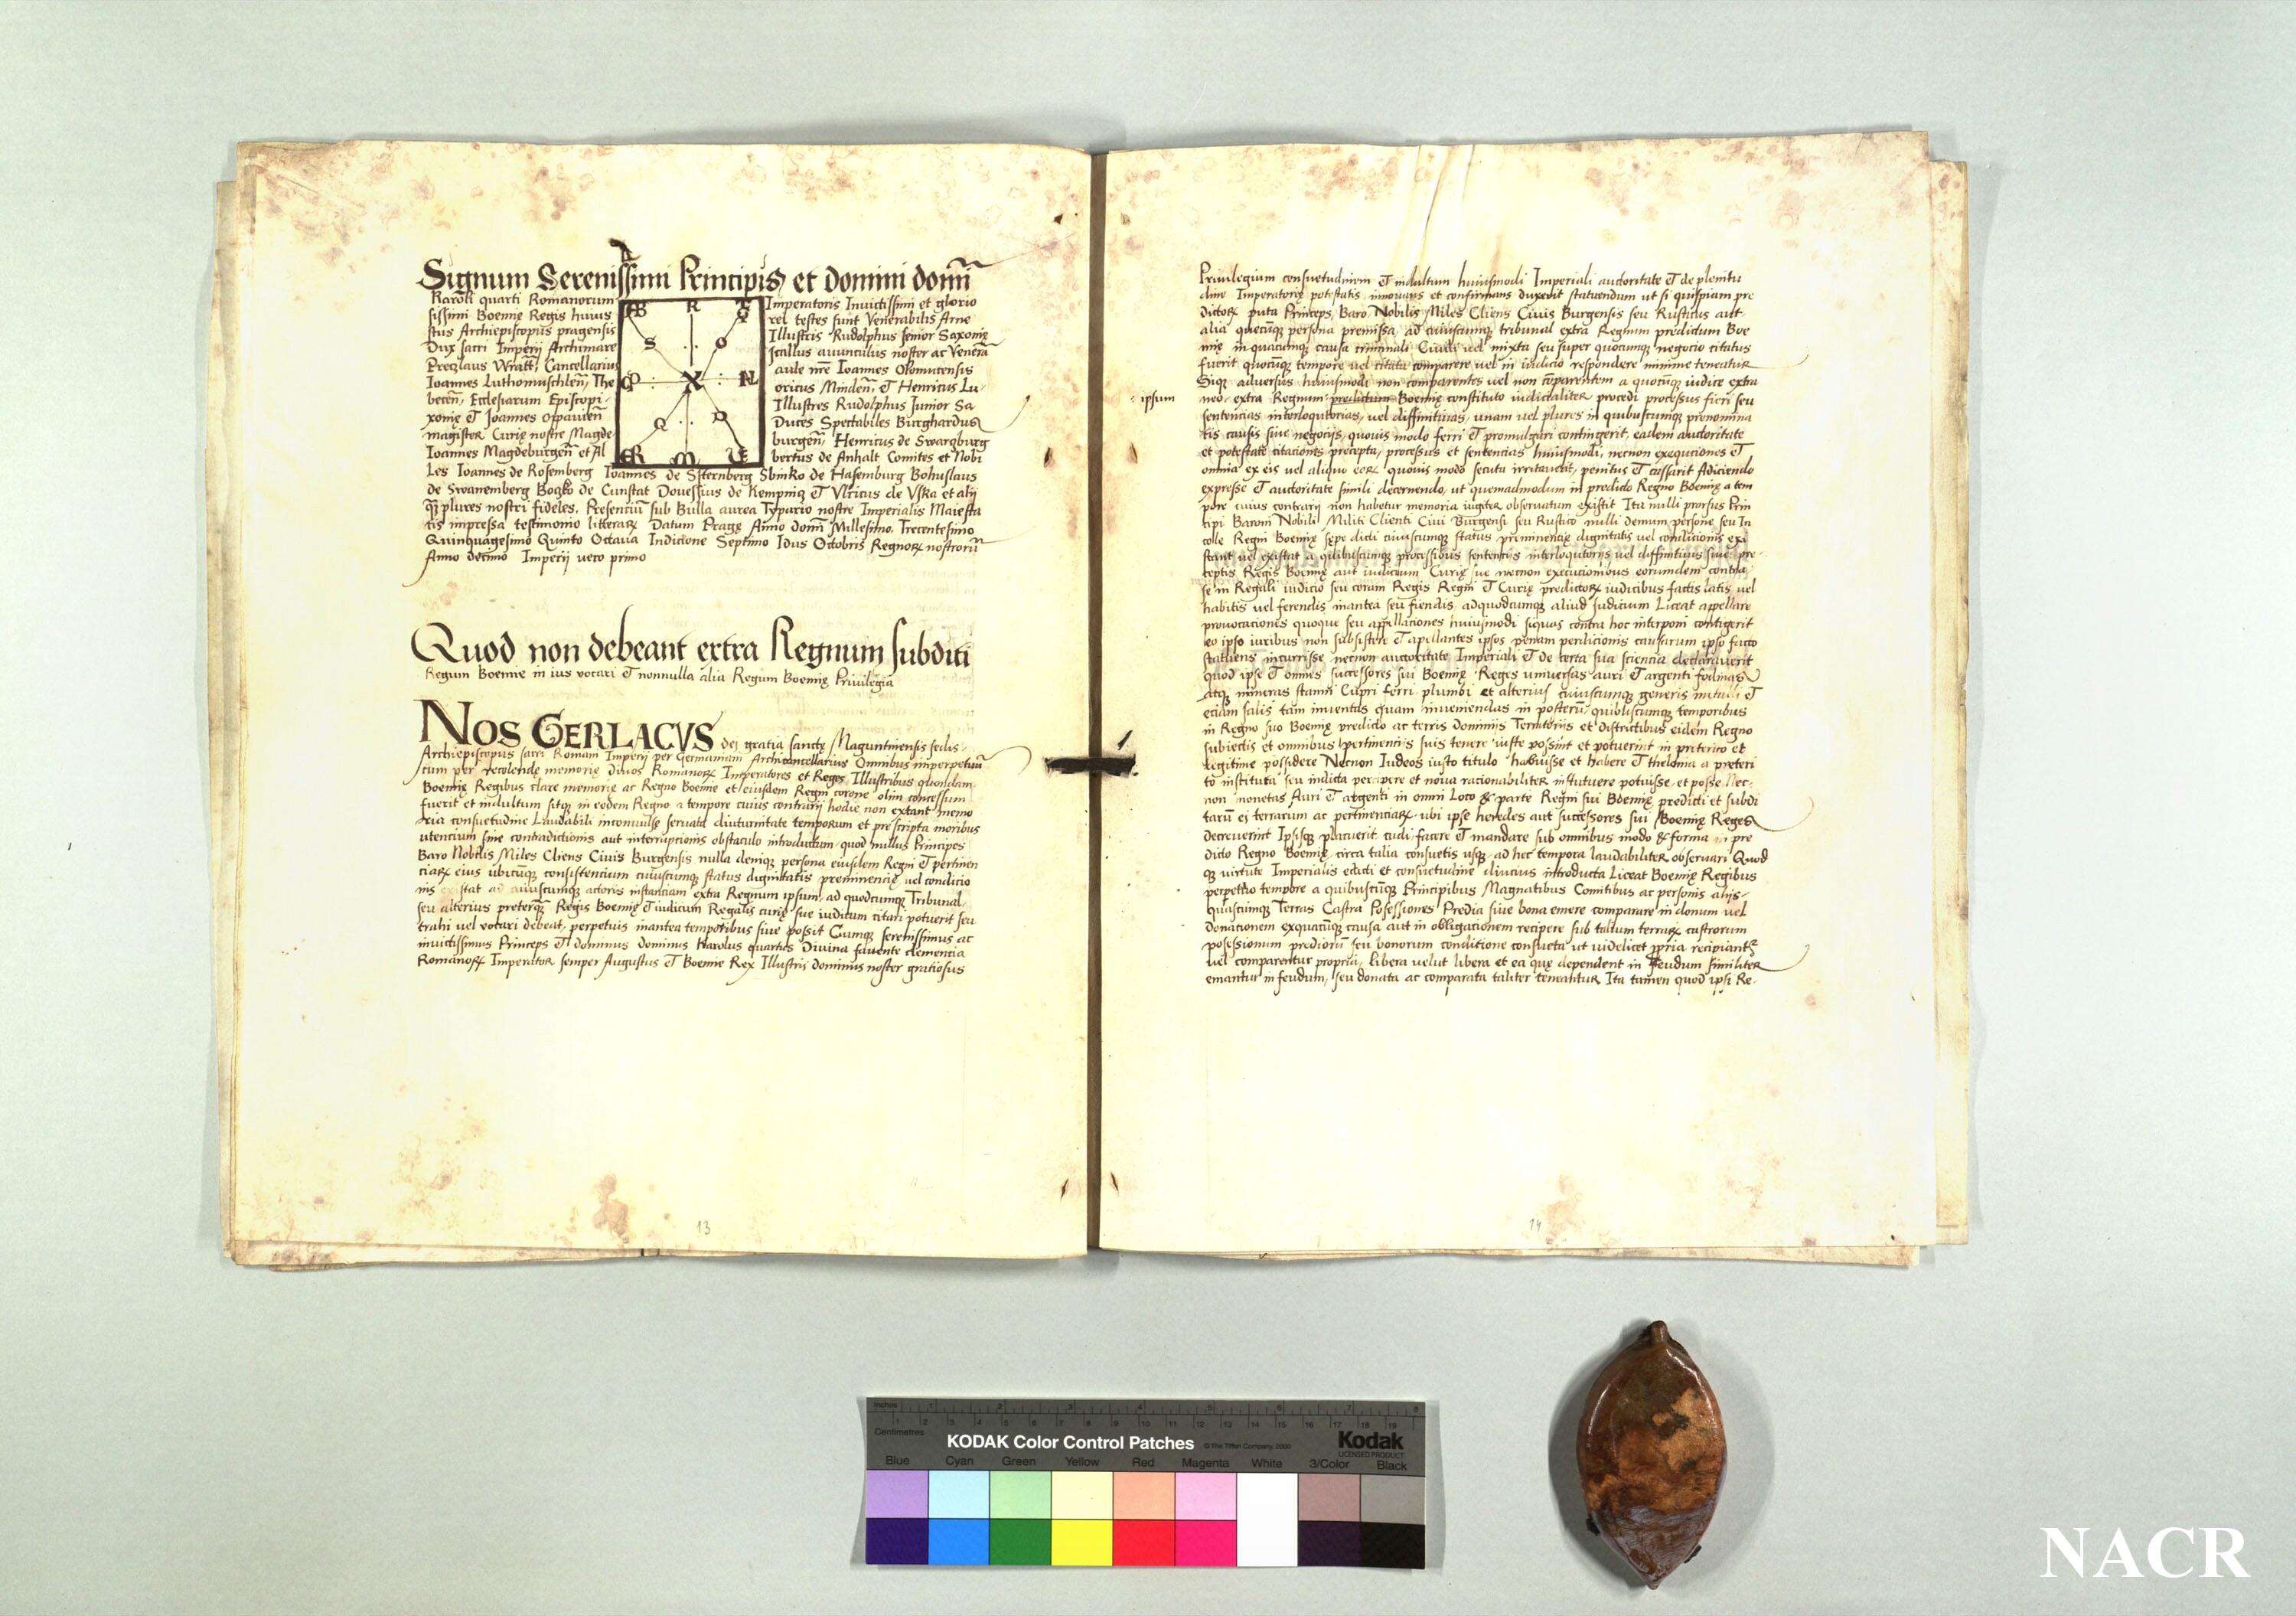 Signum Serenissimi Principis et domini domĩ
Karoli quarti Romanorum Imperatoris Invictissimi et glorio
sissimi Boemię Regis huius rei testes sunt Venerabilis Arne
stus Archiepiscopus pragensis Illustris Rudolphus senior Saxonię
Dux sacri Imperij Archimare scallus avunculus noster ac Venera
Preczlaus Wratt, Cancellarius aule nrẽ Ioannes Olomucensis
Ioannes Luthomuschleñ, The odoricus Mindeñ, et Henricus Lu-
beceñ, Ecclesiarum Episcopi Illustres Rudolphus Iunior Sa
xonię et Ioannes Opavieñ Duces Spectabiles Burghardus
magister Curię nostre Magde burgeñ, Henricus de Swarqburg
Ioannes Magdeburgeñ et Al bertus de Anhalt Comites et Nobi
Les Ioannes de Rosemberg Ioannes de Sternberg Sbinko de Hasemburg Bohuslaus
de Swanemberg Boczko de Cunstat Dovessius de Kempnicz et Ulricus de Uska et alij
q̃ plures nostri fideles. Presenciũ sub Bulla aurea Typario nostre Imperialis Maiesta
tis impressa testimonio litterarꝝ Datum Pragę Anno domĩ Millesimo. Trecentesimo
Quinquagesimo Quinto Octava Indicione Septimo Idus Octobris Regnorꝝ nostrorũ
Anno decimo Imperij vero primo
Quod non debeant extra Regnum subditi
Regum Boemie in ius vocari et nonnulla alia Regum Boemię Privilegia
NOS GERLACVS dei gratia sanctę Maguntinensis sedis
Archiepiscopus sacri Romani Imperij per Germaniam Archicancellarius Omnibus imperpetuũ
cum per recolendę memorię Divos Romanorꝝ Imperatores et Reges Illustribus quondam
Boemię Regibus clare memorię ac Regno Boemie et eiusdem Regni corone olim concessum
fuerit et indultum sitqꝫ in eodem Regno a tempore cuius contrarij hodie non extant memo
ria consuetudine Laudabili inconvulse servata diuturnitate temporum et prescripta moribus
utencium sine contradictionis aut interrupcionis obstaculo introductum quod nullus Princeps
Baro Nobilis Miles Cliens Civis Burgensis nulla deniqꝫ persona eiusdem Regni et pertinen
ciarꝝ eius ubicũqꝫ consistencium cuiuscumqꝫ status dignitatis preminencię vel condicio
nis existat ad cuiuscumqꝫ actoris instanciam extra Regnum ipsum ad quodcumqꝫ Tribunal
seu alterius preterq̃ Regis Boemię et iudicum Regalis curię sue iudicum citari potuerit seu
trahi vel vocari debeat, perpetuis inantea temporibus sive possit Cumqꝫ serenissimus ac
invictissimus Princeps et dominus dominus Karolus quartus Divina favente clemencia
Romanorꝝ Imperator semper Augustus et Boemie Rex Illustris dominus noster gratiosus
13
Privilegium consuetudinem et indultum huiusmodi Imperiali auctoritate et de plenitu
dine Imperatorię potestatis innovans et confirmans duxerit statuendum ut si quispiam pre
dictorꝝ puta Princeps, Baro Nobilis Miles Cliens Civis Burgensis seu Rusticus aut
alia quecũqꝫ persona premissa, ad cuiuscumqꝫ tribunal extra Regnum predictum Boe
mię in quacumqꝫ causa criminali Civili vel mixta seu super quocumqꝫ negocio citatus
fuerit quocũqꝫ tempore vel citata comparere vel in iudicio respondere minime teneatur
Siqꝫ adversus huiusmodi non comparentes vel non cõparentem a quocũqꝫ iudice extra
ipsum
neo extra Regnum predictum Boemię constituto iudicialiter procedi processus fieri seu
sentencias interloquitorias, vel diffinitivas, unam vel plures in quibuscumqꝫ prenomina
tis causis sive negocijs, quovis modo ferri et promulgari contingerit, eadem auctoritate
et potestate citaciones precepta, processus et sentencias huiusmodi, necnon exequciones et
omnia ex eis vel aliquo eorꝝ quovis modo secuta irritaverit, penitus et cassarit Adiciendo
expresse et auctoritate simili decernendo, ut quemadmodum in predicto Regno Boemię a tem
pore cuius contrarij non habetur memoria iugiter observatum existit Ita nulli prorsus Prin
cipi Baroni Nobili Militi Clienti Civi Burgensi seu Rustico nulli demum persone seu In
cole Regni Boemię sępe dicti cuiuscumqꝫ status preminencię dignitatis vel condicionis exi
stant vel existat a quibuscumqꝫ processibus sentencijs interloquitorijs vel diffinitivis sive pre-
ceptis Regis Boemię aut iudicum Curię sue necnon execucionibus eorumdem contra
se in Regali iudicio seu coram Regis Regni et Curię predictorꝝ iudicibus factis latis vel
habitis vel ferendis inantea seu fiendis adquodcumqꝫ aliud Iudicium Liceat appellare
provocaciones quoque seu appellaciones huiusmodi siquas contra hoc interponi contigerit
eo ipso iuribus non subsistere et apellantes ipsos penam perdicionis causarum ipso facto
statuens incurrisse necnon auctoritate Imperiali et de certa sua sciencia declaraverit
quod ipse et omnes successores sui Boemię Reges universas auri et argenti fodinas
atqꝫ mineras stanni Cupri ferri plumbi et alterius cuiuscumqꝫ generis metalli et
eciam salis tam inventas quam inveniendas in posterũ quibuscumqꝫ temporibus
in Regno suo Boemię predicto ac terris dominijs Territorijs et districtibus eidem Regno
subiectis et omnibus pertinencijs suis tenere iuste possint et potuerint in preterito et
legitime possidere Necnon Iudeos iusto titulo habuisse et habere et thelonia a preteri
to instituta seu indicta percipere et nova racionabiliter instituere potuisse et posse Nec-
non monetas Auri et argenti in omni Loco et parte Regni sui Boemię predicti et subdi
tarũ ei terrarum ac pertinenciarꝝ ubi ipse heredes aut successores sui Boemię Reges
decreverint Ipsisqꝫ placuerit cudi facere et mandare sub omnibus modo et forma in pre
dicto Regno Boemię circa talia consuetis usqꝫ ad hec tempora laudabiliter observari Quod
qꝫ virtute Imperialis edicti et consvetudine diucius introducta Liceat Boemię Regibus
perpetuo tempore a quibuscũqꝫ Principibus Magnatibus Comitibus ac personis alijs
quascumqꝫ Terras Castra Posessiones Predia sive bona emere comparare in donum vel
donacionem exquacũqꝫ causa aut in obligacionem recipere sub talium terrarꝝ castrorum
posessionum prediorũ seu bonorum conditione consueta ut videlicet ppria recipiantr̃
vel comparentur propria, libera velut libera et ea quę dependent in feudum similiter
emantur in feudum, seu donata ac comparata taliter teneantur Ita tamen quod ipsi Re-
14
Inches
Centimetres
KODAK Color Control Patches © The Tiffen Company, 2000 Kodak
LICENSED PRODUCT
Blue Cyan Green Yellow Red Magenta White 3/Color Black
NACR